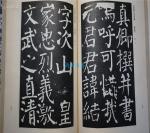 真卿撰并書
嗚呼可惜哉
元君君諱結
字次山皇
家忠烈義激
文武之直清